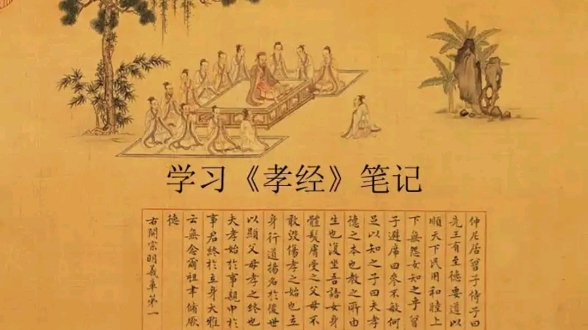 学习《孝经》笔记
仲尼居曾子侍子曰
先王有至德要道以
順天下民用和睦上
下無怨女知之乎曾
子避席曰參不敏何
足以知之子曰夫孝
德之本也教之所由
生也復坐吾語女身
體髮膚受之父母不
敢毀傷孝之始也立
身行道揚名於後世
以顯父母孝之終也
夫孝始於事親中於
事君終於立身大雅
云無念爾祖聿脩厥
德
右開宗明義章第一